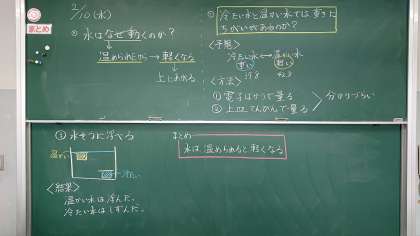 2/10(水)
まとめ
水はなぜ動くのか?
温められたから → 軽くなる
上にあがる
冷たい水と温かい水では重さにちがいがあるのか?
<予想>
冷たい水 ↔ 温かい水
重い 軽い
<方法>
① 電子はかりで量る
② 上皿てんびんで量る
分かりづらい
③ 水そうに浮べる
温かい
冷たい
<結果>
温かい水は浮んだ。
冷たい水はしずんだ。
まとめ
水は温められると軽くなる